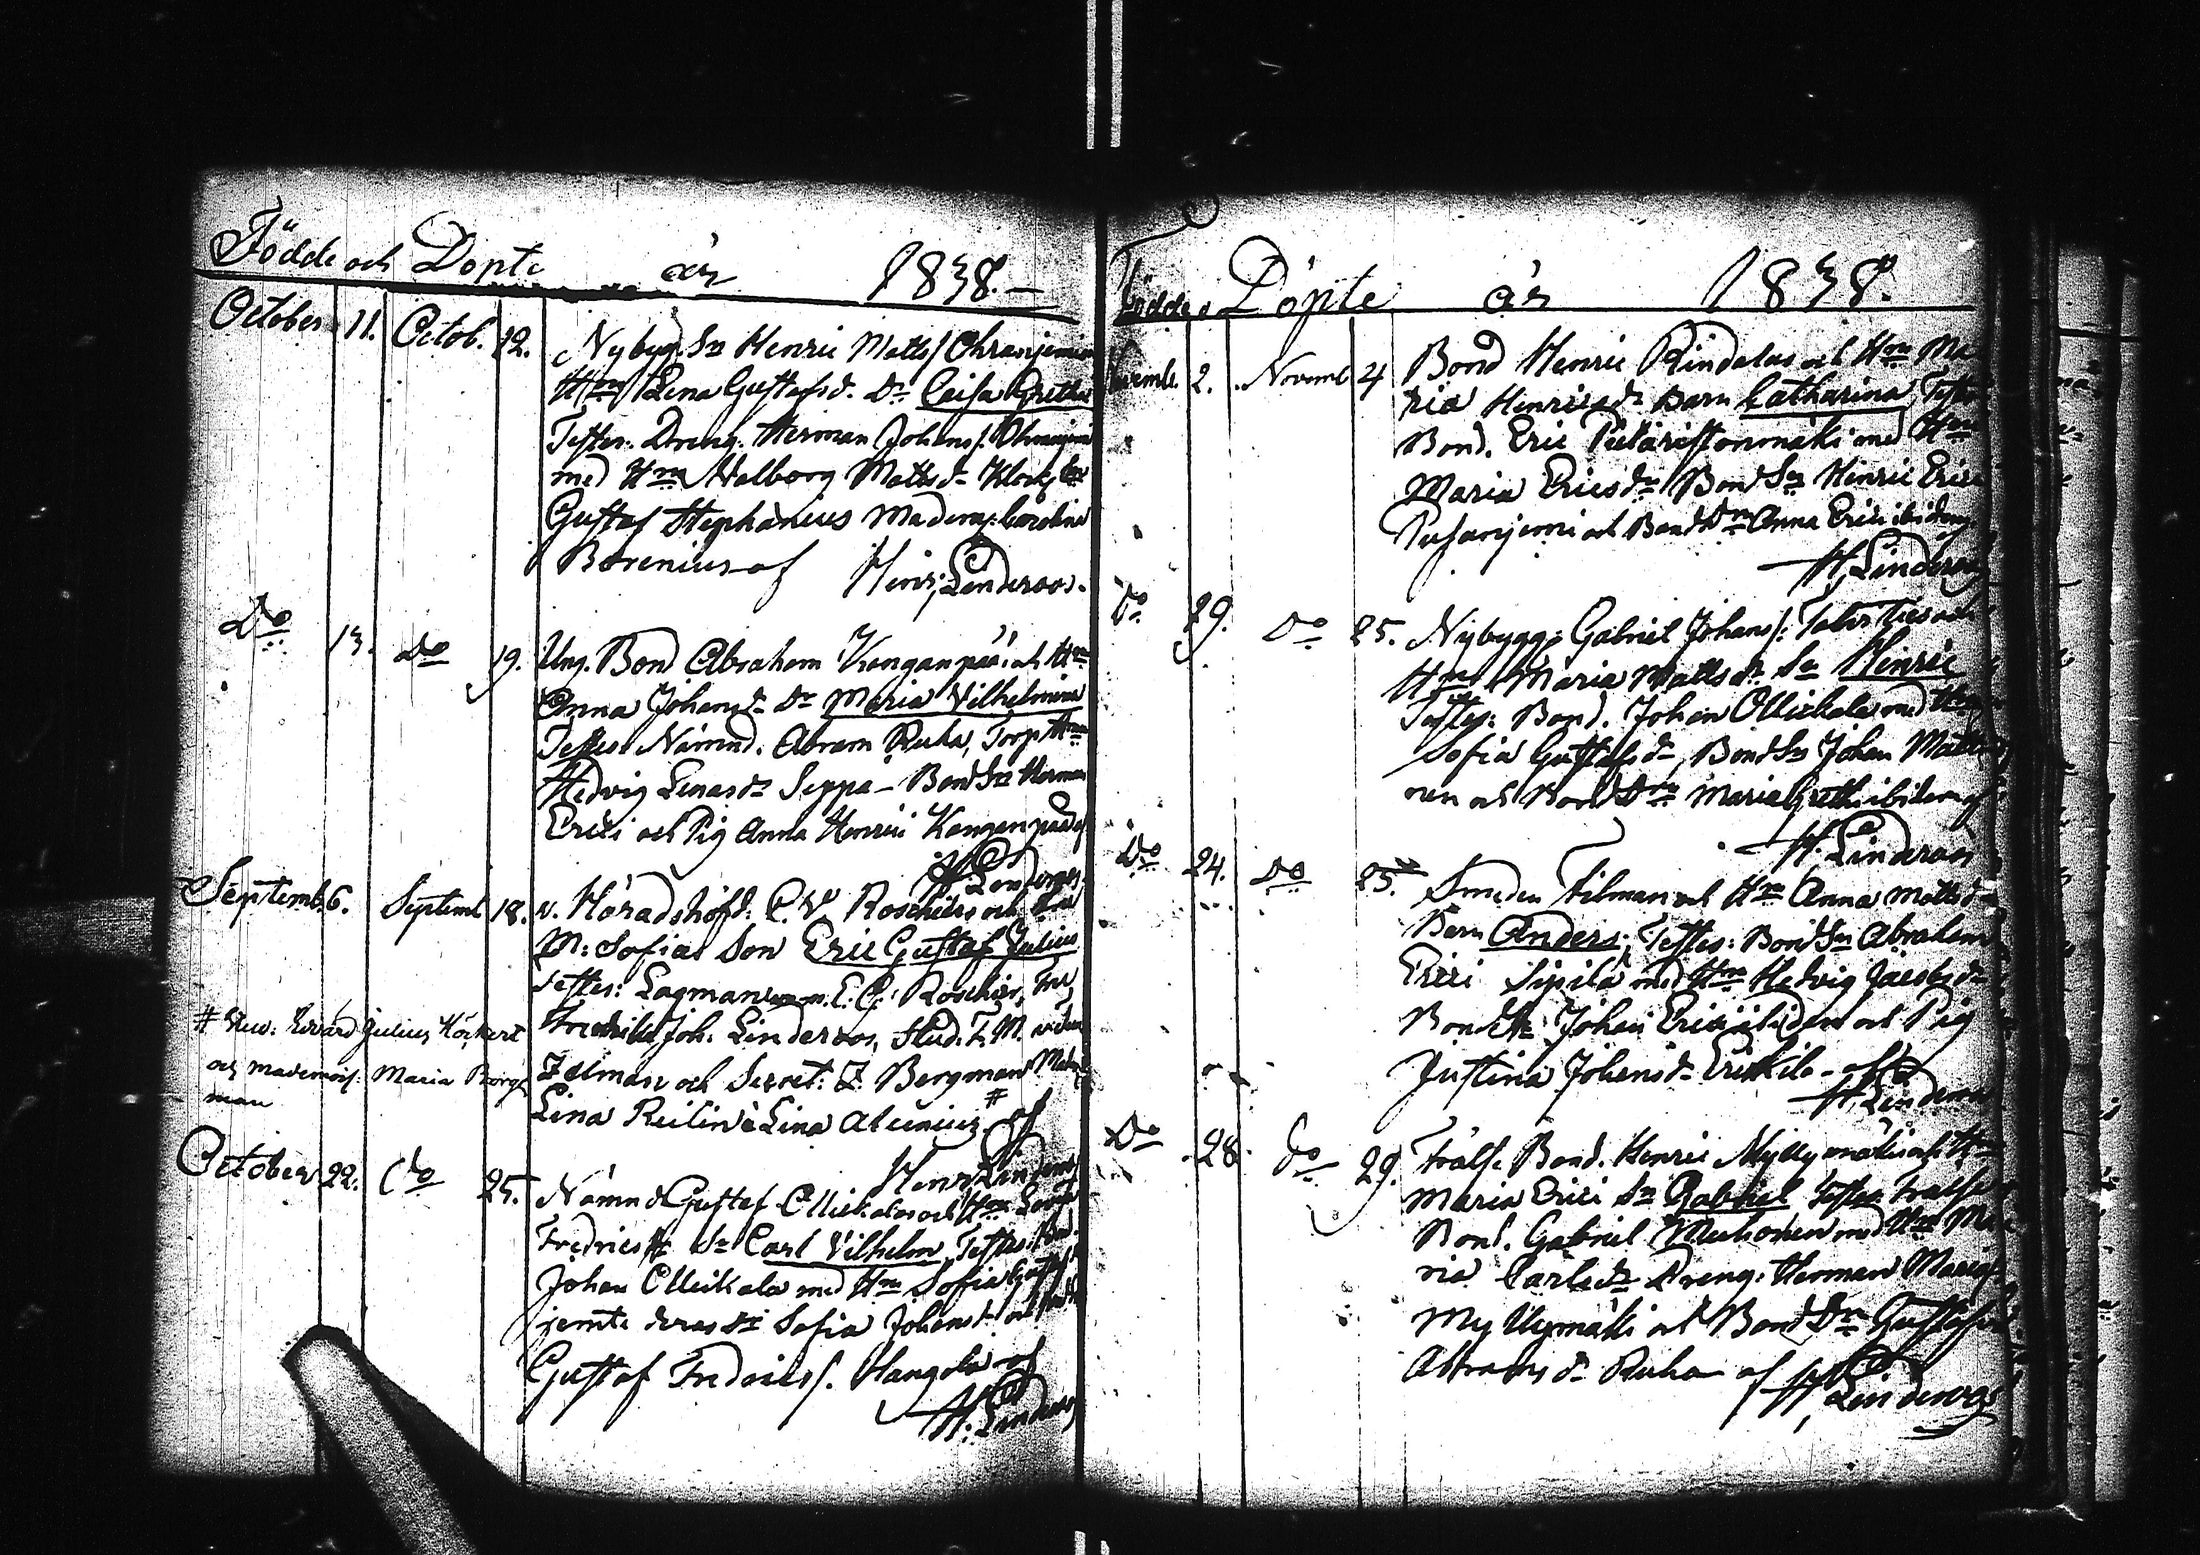 Födde och Döpte år 1838.
October 11. Octob. 12. Nybyg. Sn Henric Matts/ Ohranjemi
Hm Lena Gustafsd. Dr Caisa Gretha
Testes: Dreng. Herman Johans/.
med Hm Walborg Mattsd Klock.
Gustaf Stephaneus Madems: Carolina
Borenius af Henr. Linderoos.
Do 13. Do 19. Ung. Bond Abraham Kanganpää och Hm
Anna Johansd Dr Maria Vilhelmina
Testes Nämnd. Abram Ruha, Torp Hm
Hedvig Enasdr Seppä - Bond Sn Herman
Erici och Pig Anna Henrici Kanganpää af
H. Linderoos
Septemb. 6. Septemb 18. v. Häradshöfd: C. V. Roschier och
M: Sofias Son Eric Gustaf Julius
Testes: Lagman E. G. Roschier,
Joh. Linderoos, Stud. F. M.
Zelman och Secret: Z Bergman
Lina Reilin & Lina Alcenius # af
Henr. Linderoos
# Stud: Edvard Julius Höckert
och mademois. Maria Berg
man
October 22. do 25. Nämnd Gustaf Ollickalas och Hm
Fredricsdr Sn Carl Vilhelm, Testes: Bond.
Johan Ollickala med Hm Sofia Gustafs
jemte deras Dr Sofia Johansd och
Gustaf Fredricss/. Hangola af
H. Linderoos
Födde o Döpte år 1838.
Novemb. 2. Novemb 4 Bond Henric Rindalas och Hm Ma
ria Henricsdr Barn Catharina Testes
Bond. Eric Pietaristonmäki med Hm
Maria Ericsdr Bond Sn Henric Erici
Pusanjemi och Bond Dr Anna Erici ibidem
H. Linderoos
Do 19. Do 25. Nybygg. Gabriel Johans/. Talvities och
Hm Maria Mattsdr Sn Henric
Testes: Bond. Johan Ollickala med Hm
Sofia Gustafsdr, Bond Sn Johan Matti
nen och Bond Dr Maria Greth. ibidem af
H. Linderoos
Do 24. Do 25. Smeden Filman och Hm Anna Mattsd
Barn Anders, Testes: Bond Sn Abraham
Erici Sipilä med Hm Hedvig Jacobsdr
Bond Sn Johan Erici ibidem och Pig
Justina Johansdr Erickilä - af
H. Linderoos
Do 28. do 29. Frälse Bond. Henric Myllymäkis och Hm
Maria Erici Sn Gabriel Testes Frälse
Bond. Gabriel Muhonen med Hm Ma
ria Carlsdr Dreng. Herman
Myllymäki och Bond Dr Gustafva
Abrahsdr Ruha af H. Linderoos